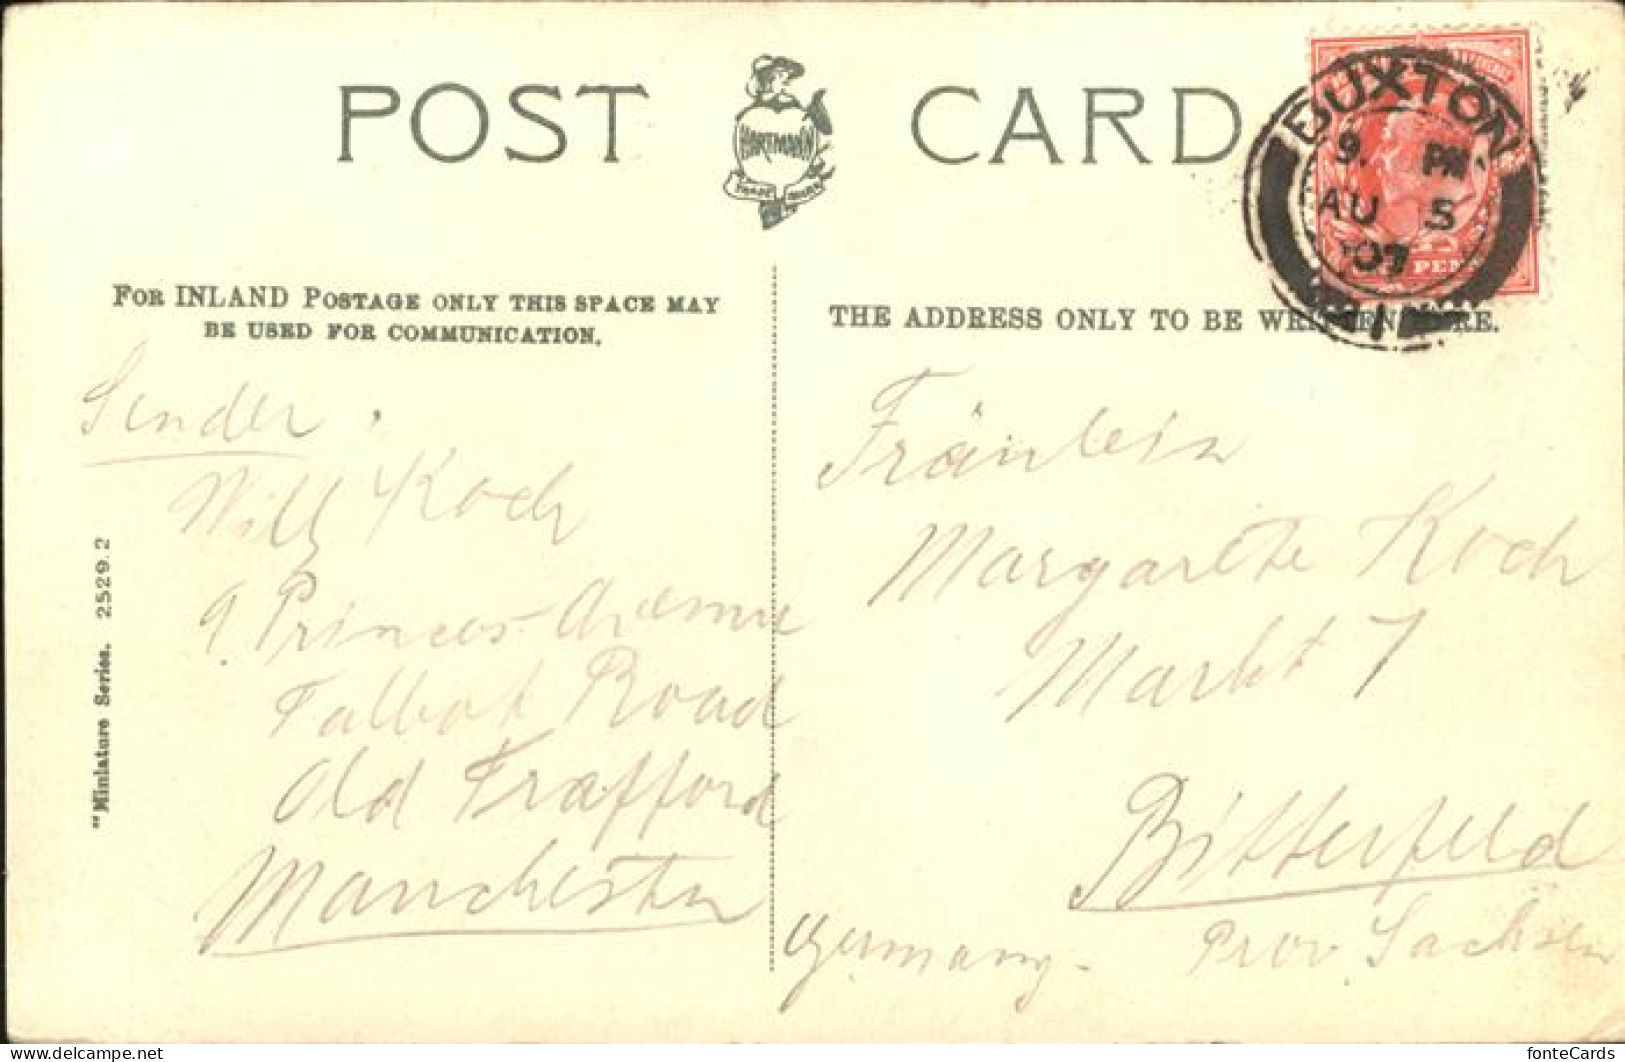 POST CARD
HARTMANN
TRADE MARK
BUXTON
9. PM
AU 5
07
FOR INLAND POSTAGE ONLY THIS SPACE MAY
BE USED FOR COMMUNICATION.
THE ADDRESS ONLY TO BE WRITTEN HERE.
Sender.
Willy Koch
9. Princes Avenue
Talbot Road
Old Trafford
Manchester
"Miniature Series. 2529.2
Fräulein
Margarete Koch
Markt 7
Bitterfeld
Prov Sachsen
Germany-
fonteCards